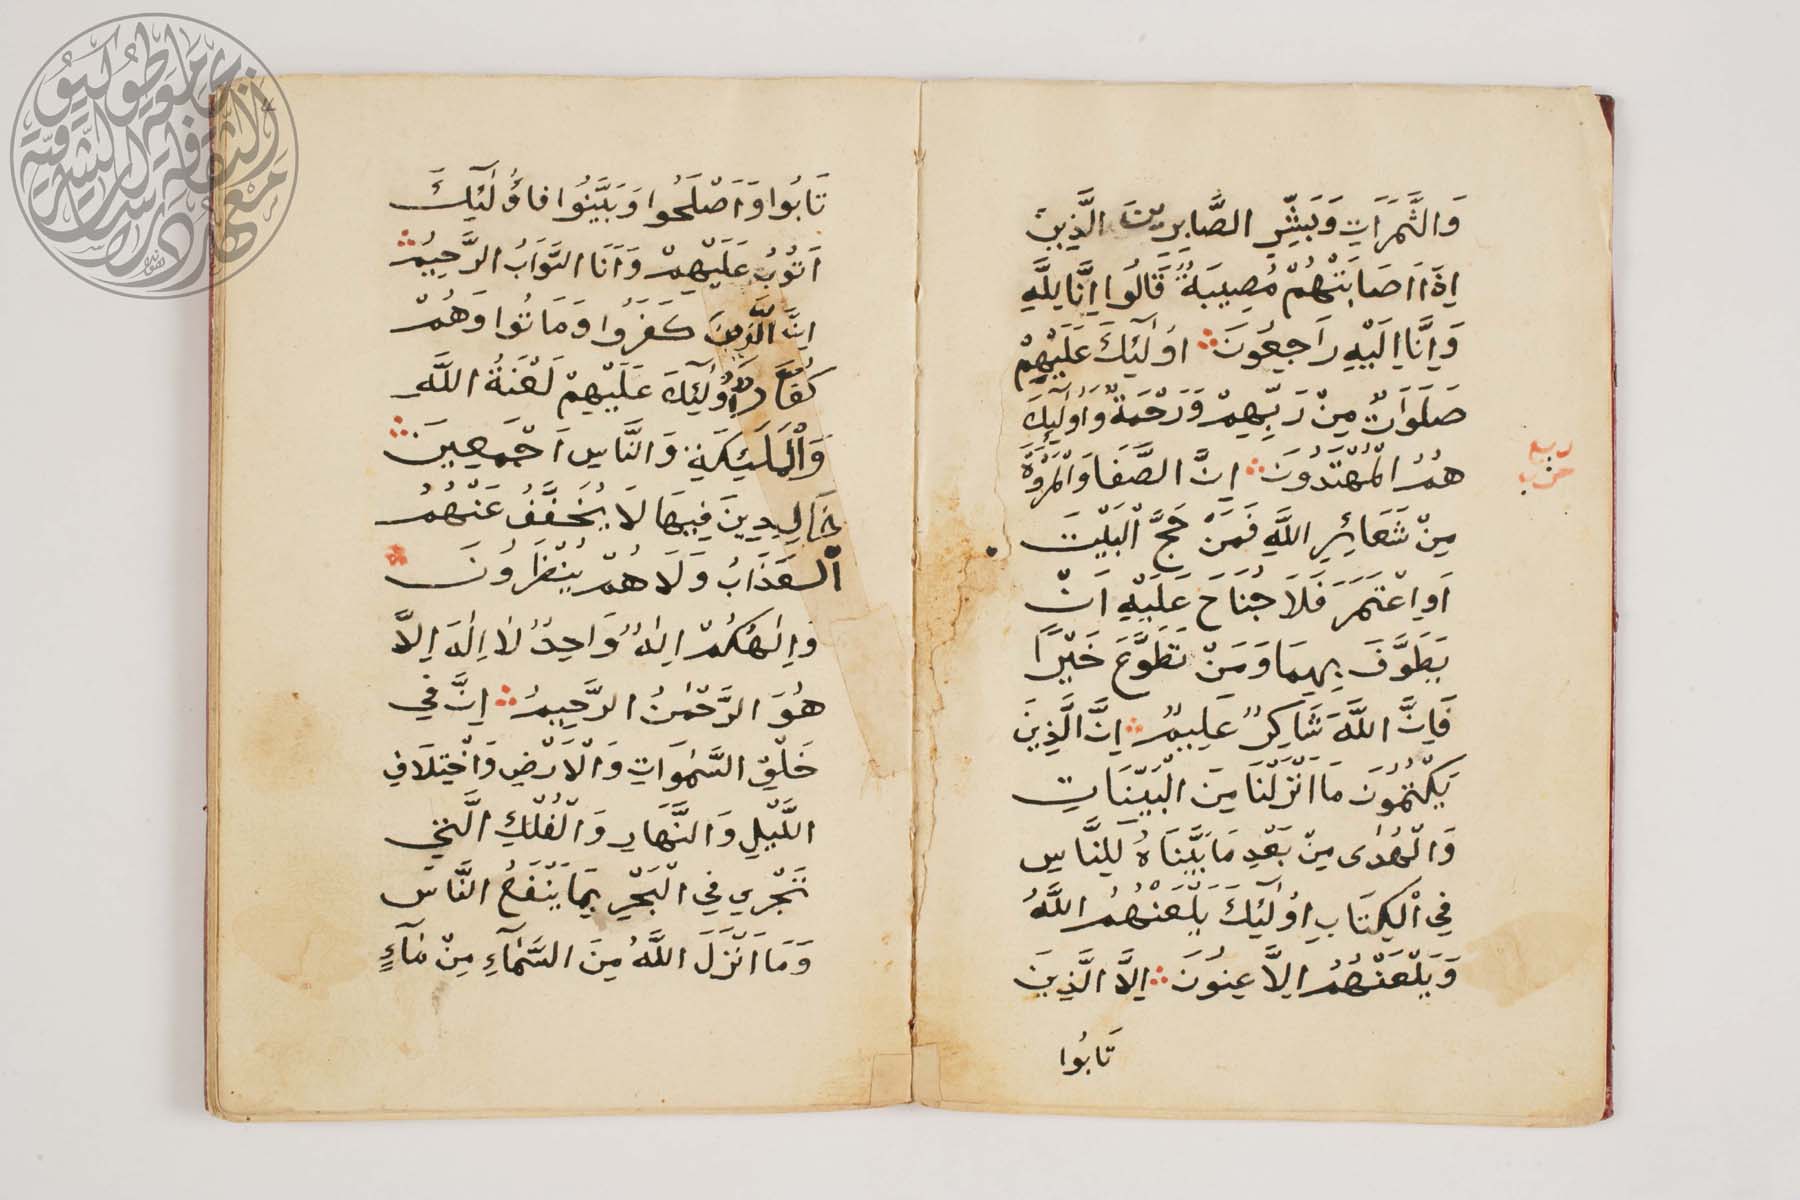 وَالثَّمَرَاتِ وَبَشِّرِ الصَّابِرِينَ الَّذِينَ
اِذَا اَصَابَتْهُمْ مُصِيبَةٌ قَالُوا اِنَّا لِلَّهِ
وَاِنَّا اِلَيْهِ رَاجِعُونَ ۞ اُولٰٓئِكَ عَلَيْهِمْ
صَلَوَاتٌ مِنْ رَبِّهِمْ وَرَحْمَةٌ وَاُولٰٓئِكَ
هُمُ الْمُهْتَدُونَ ۞ اِنَّ الصَّفَا وَالْمَرْوَةَ
ربع
حزب
مِنْ شَعَائِرِ اللَّهِ فَمَنْ حَجَّ الْبَيْتَ
اَوِ اعْتَمَرَ فَلَا جُنَاحَ عَلَيْهِ اَنْ
يَطَّوَّفَ بِهِمَا وَمَنْ تَطَوَّعَ خَيْرًا
فَاِنَّ اللَّهَ شَاكِرٌ عَلِيمٌ ۞ اِنَّ الَّذِينَ
يَكْتُمُونَ مَا اَنْزَلْنَا مِنَ الْبَيِّنَاتِ
وَالْهُدٰى مِنْ بَعْدِ مَا بَيَّنَّاهُ لِلنَّاسِ
فِي الْكِتَابِ اُولٰٓئِكَ يَلْعَنُهُمُ اللَّهُ
وَيَلْعَنُهُمُ الَّلاعِنُونَ ۞ اِلَّا الَّذِينَ
تَابُوا
تَابُوا وَاَصْلَحُوا وَبَيَّنُوا فَاُولٰٓئِكَ
اَتُوبُ عَلَيْهِمْ وَاَنَا التَّوَّابُ الرَّحِيمُ ۞
اِنَّ الَّذِينَ كَفَرُوا وَمَاتُوا وَهُمْ
كُفَّارٌ اُولٰٓئِكَ عَلَيْهِمْ لَعْنَةُ اللَّهِ
وَالْمَلَئِكَةِ وَالنَّاسِ اَجْمَعِينَ ۞
خَالِدِينَ فِيهَا لَا يُخَفَّفُ عَنْهُمُ
الْعَذَابُ وَلَا هُمْ يُنْظَرُونَ ۞
وَاِلٰهُكُمْ اِلٰهٌ وَاحِدٌ لَا اِلٰهَ اِلَّا
هُوَ الرَّحْمٰنُ الرَّحِيمُ ۞ اِنَّ فِي
خَلْقِ السَّمٰوَاتِ وَالْاَرْضِ وَاخْتِلَافِ
اللَّيْلِ وَالنَّهَارِ وَالْفُلْكِ الَّتِي
تَجْرِي فِي الْبَحْرِ بِمَا يَنْفَعُ النَّاسَ
وَمَا اَنْزَلَ اللَّهُ مِنَ السَّمَآءِ مِنْ مَآءٍ